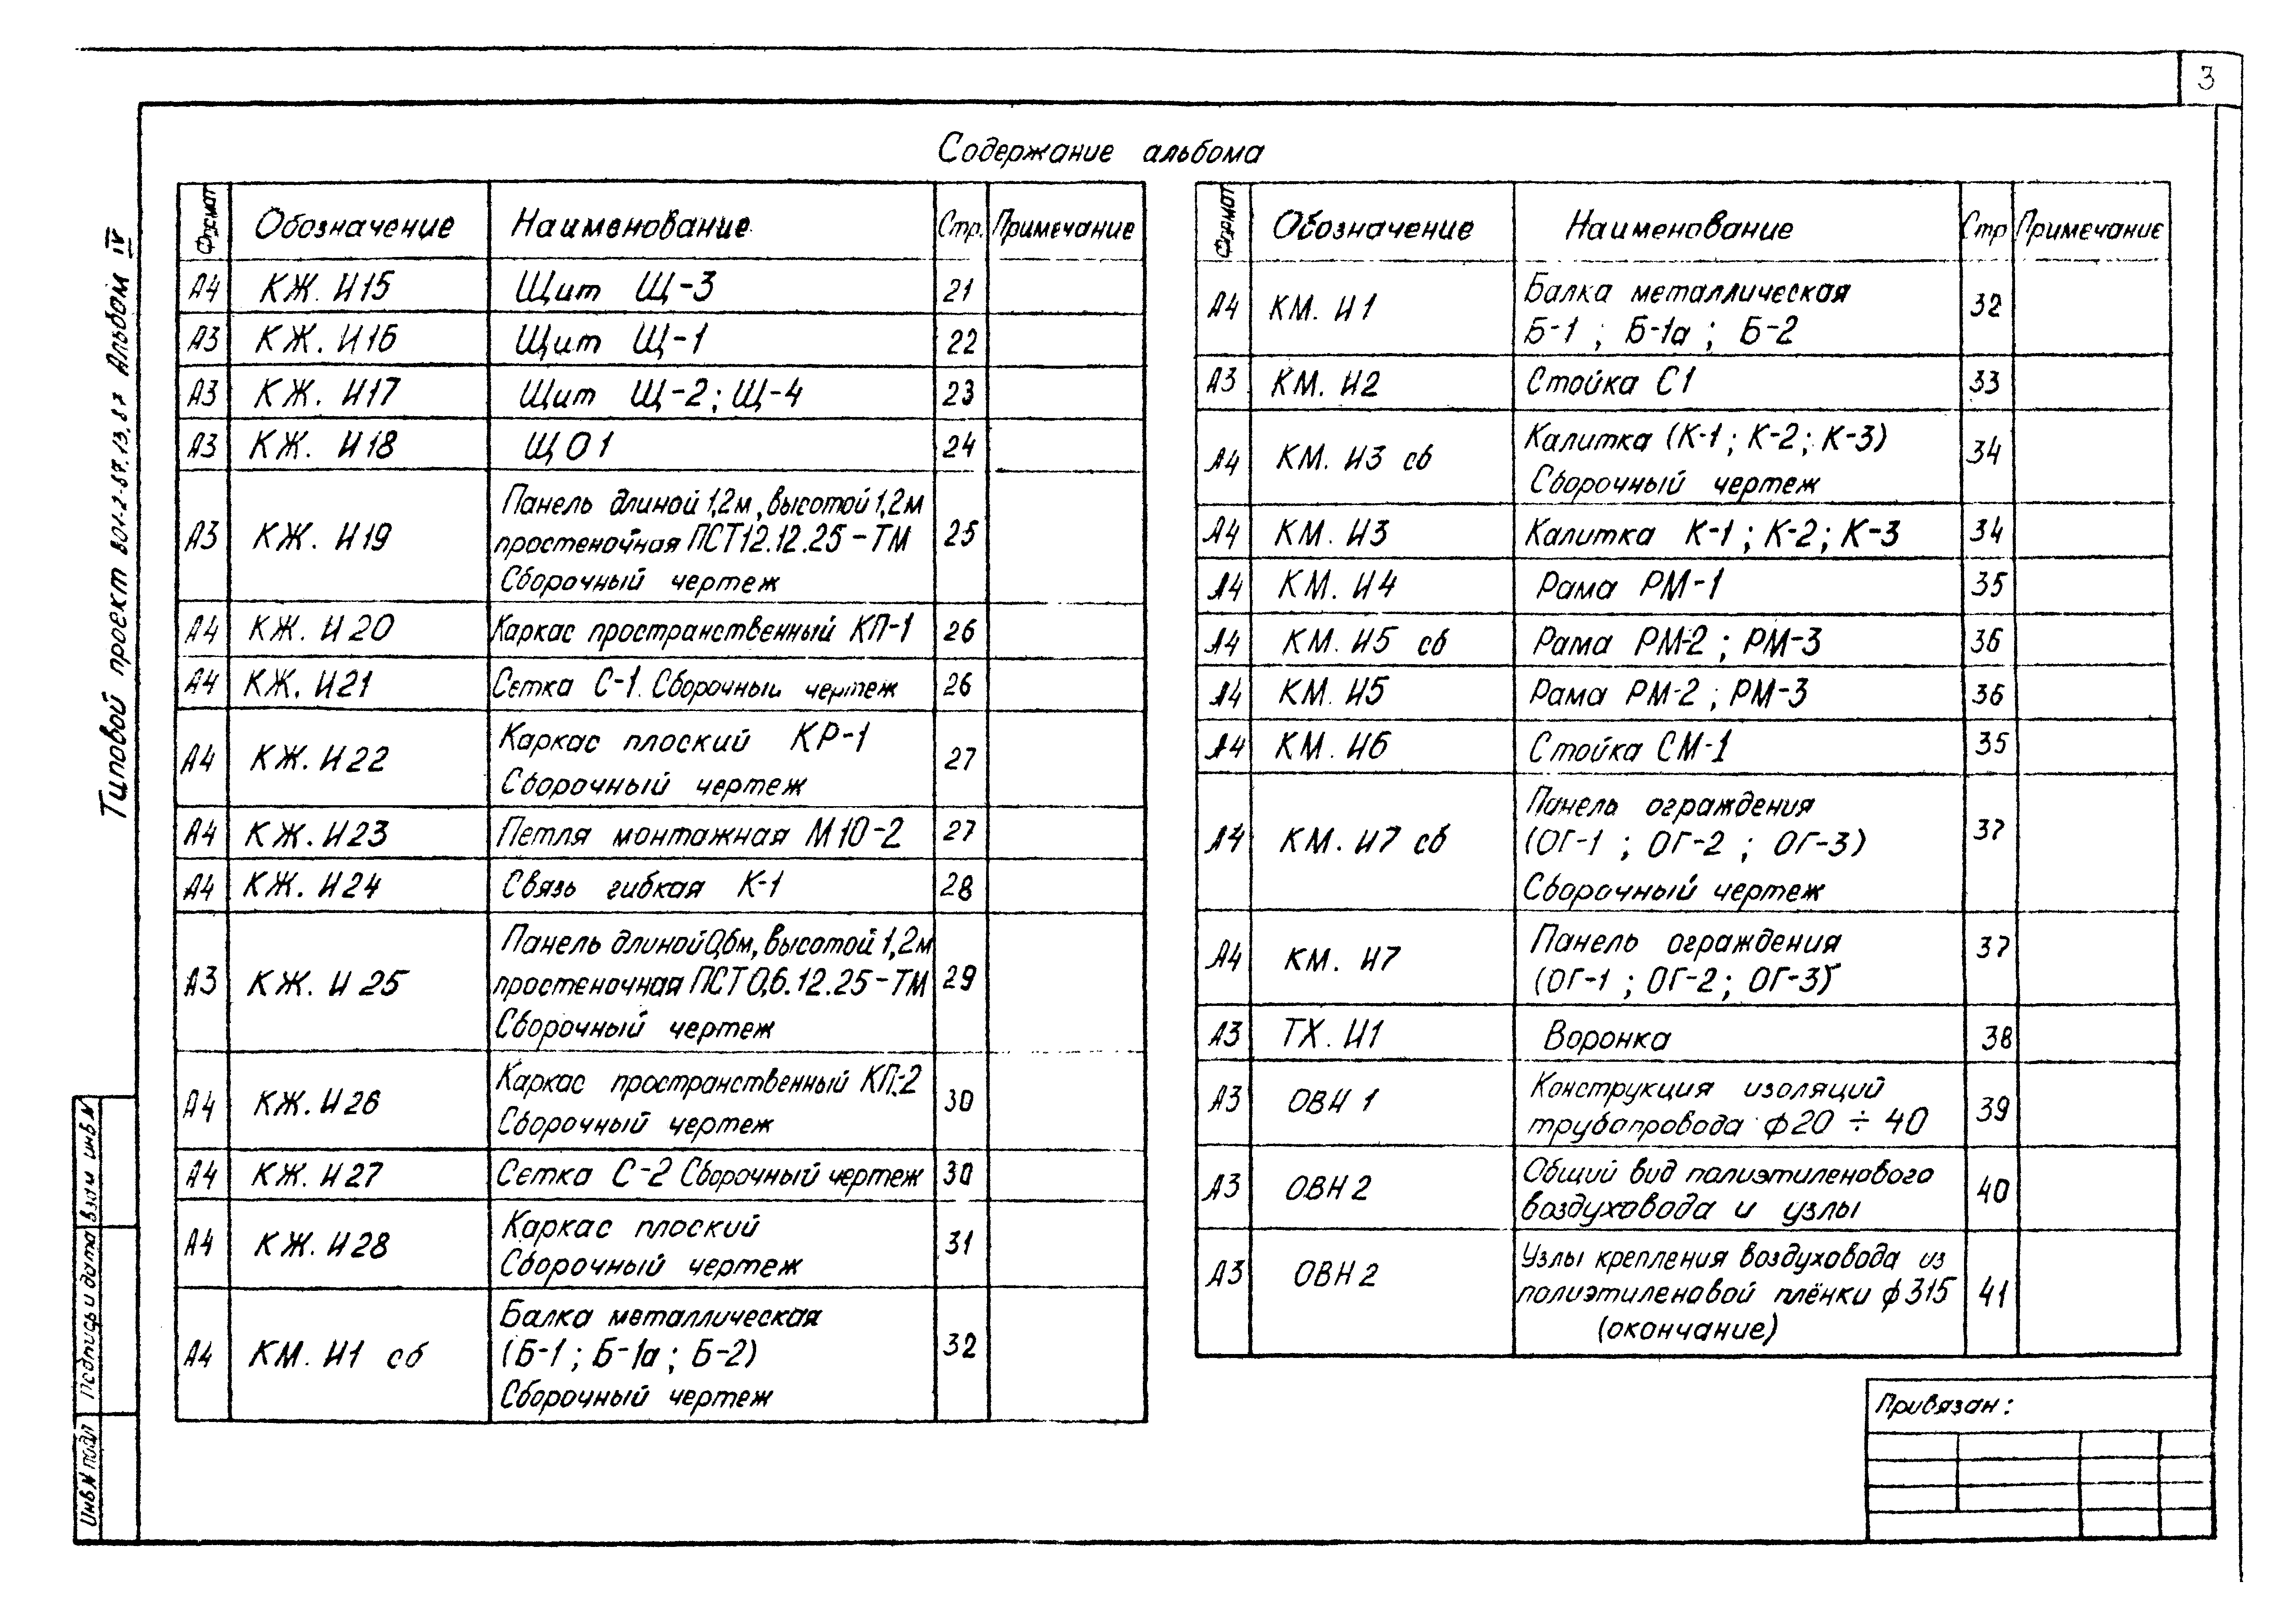 3
Содержание альбома
Типовой проект 801-2-87.13.87 Альбом IV
Формат Обозначение Наименование Стр. Примечание
А4 КЖ. И15 Щит Щ-3 21
А3 КЖ. И16 Щит Щ-1 22
А3 КЖ. И17 Щит Щ-2; Щ-4 23
А3 КЖ. И18 ЩО1 24
Панель длиной 1,2м, высотой 1,2м
А3 КЖ. И19 простеночная ПСТ12.12.25-ТМ 25
Сборочный чертеж
А4 КЖ. И20 Каркас пространственный КП-1 26
А4 КЖ. И21 Сетка С-1. Сборочный чертеж 26
Каркас плоский КР-1
А4 КЖ. И22 27
Сборочный чертеж
А4 КЖ. И23 Петля монтажная М10-2 27
А4 КЖ. И24 Связь гибкая К-1 28
Панель длиной 0,6м, высотой 1,2м
А3 КЖ. И25 простеночная ПСТ0,6.12.25-ТМ 29
Сборочный чертеж
Каркас пространственный КП-2
А4 КЖ. И26 30
Сборочный чертеж
А4 КЖ. И27 Сетка С-2 Сборочный чертеж 30
Каркас плоский
А4 КЖ. И28 31
Сборочный чертеж
Балка металлическая
А4 КМ. И1 сб (Б-1; Б-1а; Б-2) 32
Сборочный чертеж
Формат Обозначение Наименование Стр Примечание
Балка металлическая
А4 КМ. И1 32
Б-1; Б-1а; Б-2
А3 КМ. И2 Стойка С1 33
Калитка (К-1; К-2; К-3)
А4 КМ. И3 сб 34
Сборочный чертеж
А4 КМ. И3 Калитка К-1; К-2; К-3 34
А4 КМ. И4 Рама РМ-1 35
А4 КМ. И5 сб Рама РМ-2; РМ-3 36
А4 КМ. И5 Рама РМ-2; РМ-3 36
А4 КМ. И6 Стойка СМ-1 35
Панель ограждения
А4 КМ. И7 сб (ОГ-1; ОГ-2; ОГ-3) 37
Сборочный чертеж
Панель ограждения
А4 КМ. И7 37
(ОГ-1; ОГ-2; ОГ-3)
А3 ТХ. И1 Воронка 38
Конструкция изоляций
А3 ОВН 1 39
трубопровода ф20 ÷ 40
Общий вид полиэтиленового
А3 ОВН 2 40
воздуховода и узлы
Узлы крепления воздуховода из
А3 ОВН 2 полиэтиленовой плёнки ф315 41
(окончание)
Привязан:
Взам инв N
Подпись и дата
Инв N подл